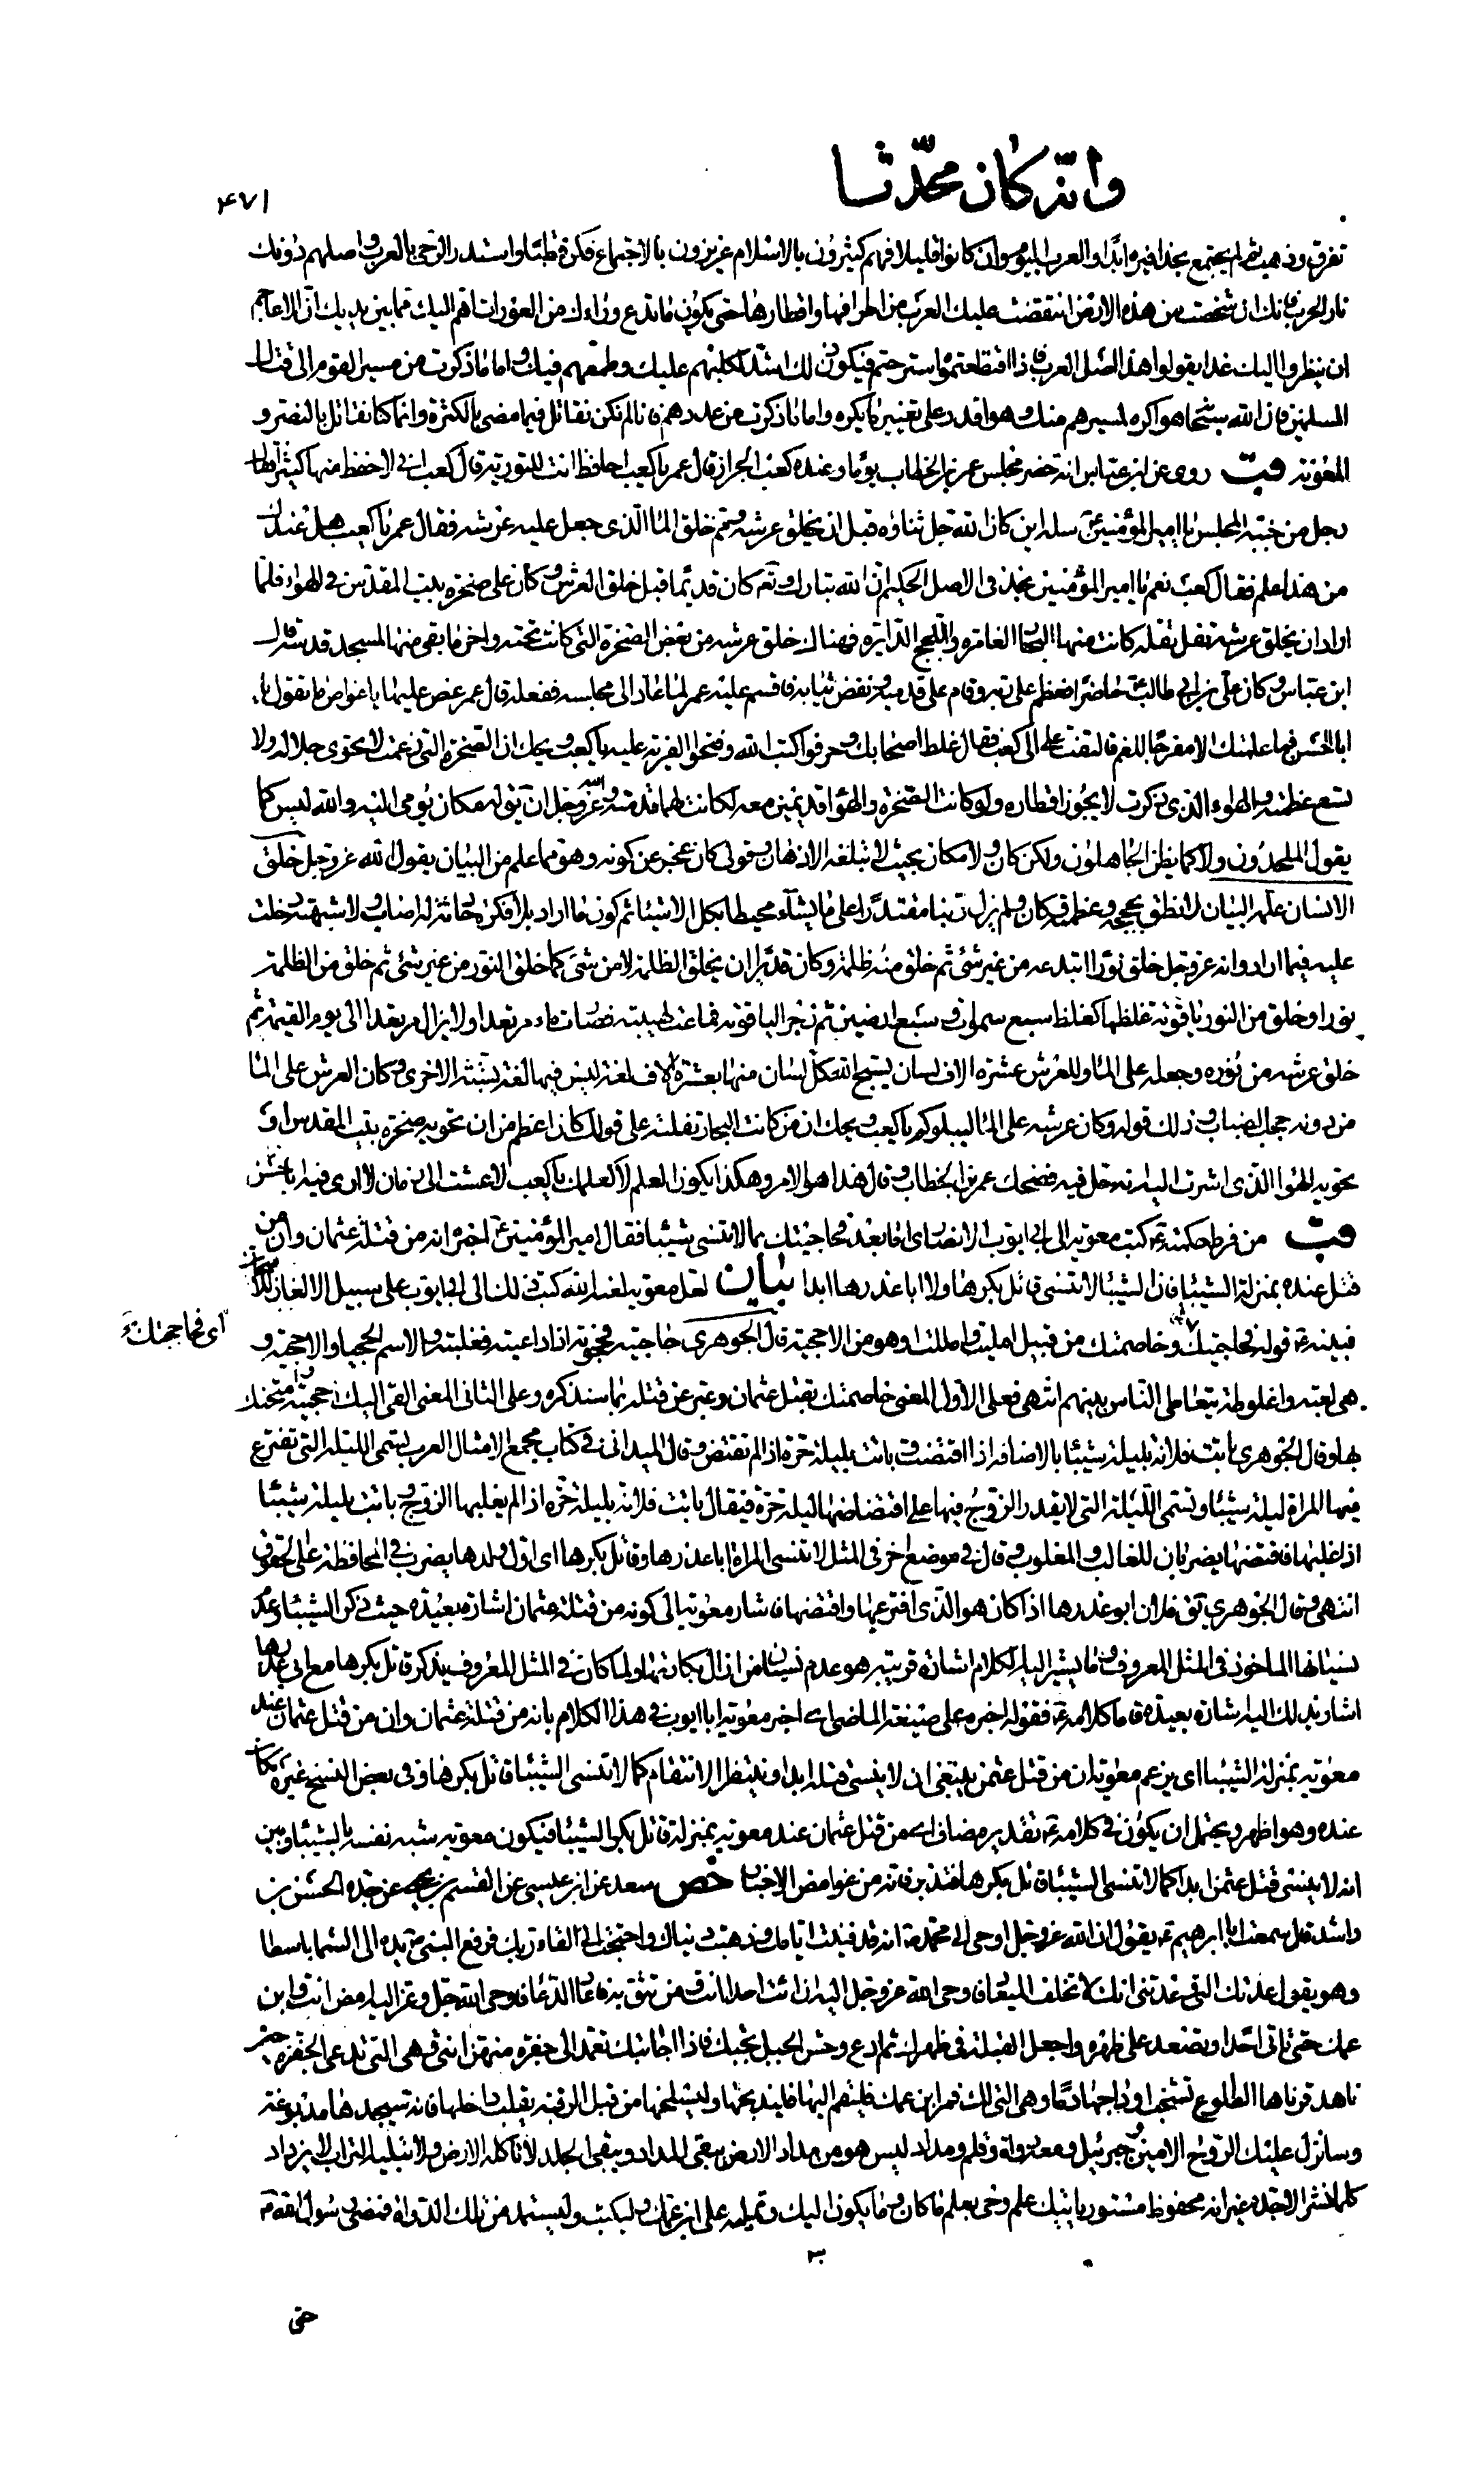 وانه كان محدثا
۴۷۱
تفرق وذهب ثم لم يجتمع بحذافيره ابدا والعرب اليوم وان كانوا قليلا فهم كثيرون بالاسلام عزيزون بالاجتماع فكن قطبا واستدر الرحى بالعرب واصلهم دونك
نار الحرب فانك ان شخصت من هذه الارض انتقضت عليك العرب من اطرافها واقطارها حتى يكون ما تدع وراءك من العورات اهم اليك مما بين يديك ان الاعاجم
ان ينظروا اليك غدا يقولوا هذا اصل العرب فاذا اقتطعتموه استرحتم فيكون ذلك اشد لكلبهم عليك وطمعهم فيك واما ما ذكرت من مسير القوم الى قتال
المسلمين فان الله سبحانه هو اكره لمسيرهم منك وهو اقدر على تغيير ما يكره واما ما ذكرت من عددهم فانا لم نكن نقاتل فيما مضى بالكثرة وانما كنا نقاتل بالنصر و
المعونة قب روى عن ابن عباس انه حضر مجلس عمر بن الخطاب يوما وعنده كعب الحبر اذ قال عمر يا كعب احافظ انت للتورية قال كعب انى لاحفظ منها كثيرا فقال
رجل من جنبة المجلس يا امير المؤمنين سله اين كان الله جل ثناؤه قبل ان يخلق عرشه ومم خلق الماء الذى جعل عليه عرشه فقال عمر يا كعب هل عندك
من هذا علم فقال كعب نعم يا امير المؤمنين نجد فى الاصل الحكيم ان الله تبارك وتع كان قديما قبل خلق العرش وكان على صخرة بيت المقدس فى الهواء فلما
اراد ان يخلق عرشه تفل تفلة كانت منها البحار الغامرة واللجج الدائرة فهناك خلق عرشه من بعض الصخرة التى كانت تحته واخر ما بقى منها لمسجد قدسه قال
ابن عباس وكان على بن ابى طالب حاضرا فعظم على ربه وقام على قدميه ونفض ثيابه فاقسم عليه عمر لما عاد الى مجلسه ففعل قال عمر غص عليها يا غواص ما تقول يا
ابا الحسن فما علمتك الا مفرجا للغم فالتفت على الى كعب فقال غلط اصحابك وحرفوا كتب الله وفتحوا الفرية عليه يا كعب ويحك ان الصخرة التى زعمت لا تحوى جلاله ولا
تسع عظمته والهواء الذى ذكرت لا يجوز اقطاره ولو كانت الصخرة والهواء قديمين معه لكانت لهما قدمته وعز الله وجل ان يقال له مكان يومى اليه والله ليس كما
يقول الملحدون ولا كما يظن الجاهلون ولكن كان ولا مكان بحيث لا تبلغه الاذهان وقولى كان عجز عن كونه وهو مما علم من البيان يقول الله عز وجل خلق
الانسان علمه البيان فقولى له كان ما علمنى من البيان
عليه فيما اراد وانه عز وجل خلق نورا ابتدعه من غير شئ ثم خلق منه ظلمة وكان قديرا ان يخلق الظلمة لا من شئ كما خلق النور من غير شئ ثم خلق من الظلمة
نورا وخلق من النور ياقوتة غلظها كغلظ سبع سموات وسبع ارضين ثم زجر الياقوتة فماعت لهيبته فصارت ماء مرتعدا ولا يزال مرتعدا الى يوم القيمة ثم
خلق عرشه من نوره وجعله على الماء وللعرش عشرة الاف لسان يسبح الله كل لسان منها بعشرة الاف لغة ليس فيها لغة تشبه الاخرى وكان العرش على الماء
من دونه حجب الضباب وذلك قوله وكان عرشه على الماء ليبلوكم يا كعب ويحك ان من كانت البحار تفلته على قولك كان اعظم من ان تحويه صخرة بيت المقدس او
يحويه الهواء الذى اشرت اليه انه حل فيه فضحك عمر بن الخطاب وقال هذا هو الامر وهكذا يكون العلم لا كعلمك يا كعب لا عشت الى زمان لا ارى فيه ابا حسن
قب من فرط حكمته ع كتب معوية الى ابى ايوب الانصارى اما بعد فحاجيتك بما لا تنسى شيباء فقال امير المؤمنين ع اخبره انه من قتلة عثمان وان من
قتل عنده بمنزلة الشيباء فان الشيباء لا تنسى قاتل بكرها ولا ابا عذرها ابدا بيان لعل معوية لعنه الله كتب ذلك الى ابى ايوب على سبيل الالغاز
فبينه ع قوله فحاجيتك وخاصمتك من قبيل امليت واملل​ت او هو من الاحجية قال الجوهرى حاجيته فحجوته اذا داعيته فغلبته والاسم الحجيا والاحجية و
اى فحاججتك
هى لعبة واغلوطة يتعاطى الناس بينهم انتهى فعلى الاول المعنى خاصمتك بقتل عثمان وعبر عن قتله بما سنذكره وعلى الثانى المعنى القى اليك احجية وامتحنك
بها وقال الجوهرى باتت فلانة بليلة شيباء بالاضافة اذا اقتضت وباتت بليلة حرة اذا لم تقتض وقال الميدانى فى كتاب مجمع الامثال العرب تسمى الليلة التى تفترع
فيها المراة ليلة شيباء وتسمى الليلة التى لا يقدر الزوج فيها على اقتضاضها ليلة حرة فيقال باتت فلانة بليلة حرة اذا لم يغلبها الزوج وباتت بليلة شيباء
اذا غلبها فاقتضها يضربان للغالب والمغلوب وقال فى موضع اخر فى المثل لا تنسى المراة ابا عذرها وقاتل بكرها اى اول ولدها يضرب فى المحافظة على الحقوق
انتهى وقال الجوهرى يق فلان ابو عذرها اذا كان هو الذى افترعها واقتضها فاشار معوية الى كونه من قتلة عثمان اشارة بعيدة حيث ذكر الشيباء وعدم
نسيانها الماخوذ فى المثل المعروف وما يشير اليه الكلام اشارة قريبة هو عدم نسيان من ازال بكارتها ولما كان فى المثل المعروف يذكر قاتل بكرها مع ابى عذرها
اشار بذلك اليه اشارة بعيدة واما كلامه ع فقوله اخبره على صيغة الماضى اى اخبر معوية ابا ايوب فى هذا الكلام بانه من قتلة عثمان وان من قتل عثمان عنده
معوية بمنزلة الشيباء اى يزعم معوية ان من قتل عثمن ينبغى ان لا ينسى قتله ابدا وينتظر الانتقام كما لا تنسى الشيباء قاتل بكرها وفى بعض النسخ غيره مكان
عنده وهو اظهر ويحتمل ان يكون فى كلامه ع تقدير مضاف اى من قتل عثمان عند معوية بمنزلة قاتل بكر الشيباء فيكون معوية شبه نفسه بالشيباء وبين
انه لا ينسى قتل عثمن ابدا كما لا تنسى الشيباء قاتل بكرها فتدبر فانه من غوامض الاخبار خص سعد عن ابن عيسى عن القسم بن يحيى عن جده الحسن بن
راشد قال سمعت ابا ابرهيم ع يقول ان الله عز وجل اوحى الى محمد ص انه قد فنيت ايامك وذهبت دنياك واحتجت الى لقاء ربك فرفع النبى ص يده الى السماء باسطا
وهو يقول عدتك التى وعدتنى انك لا تخلف الميعاد فاوحى الله عز وجل اليه ان ائت احدا انت ومن تثق به فاعاد الدعاء فاوحى الله جل وعز اليه امض انت وابن
عمك حتى تاتى احدا وتصعد على ظهره واجعل القبلة فى ظهرك ثم ادع وحش الجبل تجبك فاذا اجابتك تعمد الى جفرة منهن انثى وهى التى تدعى الجفرة حين
ناهد قرناها الطلوع تشخب اوداجها دما وهى التى لك فمر ابن عمك فليقم اليها فليذبحها وليسلخها من قبل الرقبة يقلب داخلها فانه سيجدها مدبوغة
وسانزل عليك الروح الامين وجبرئيل ومعه دواة وقلم ومداد ليس هو من مداد الارض يبقى المداد ويبقى الجلد لا تاكله الارض ولا تبليه التراب لا يزداد
كلما نشر الا جدة غير انه محفوظ مستور ياتيك علم وحى بعلم ما كان وما يكون اليك وتمليه على ابن عمك وليكتب وليستمد من تلك الدواة فمضى رسول الله ص
حتى